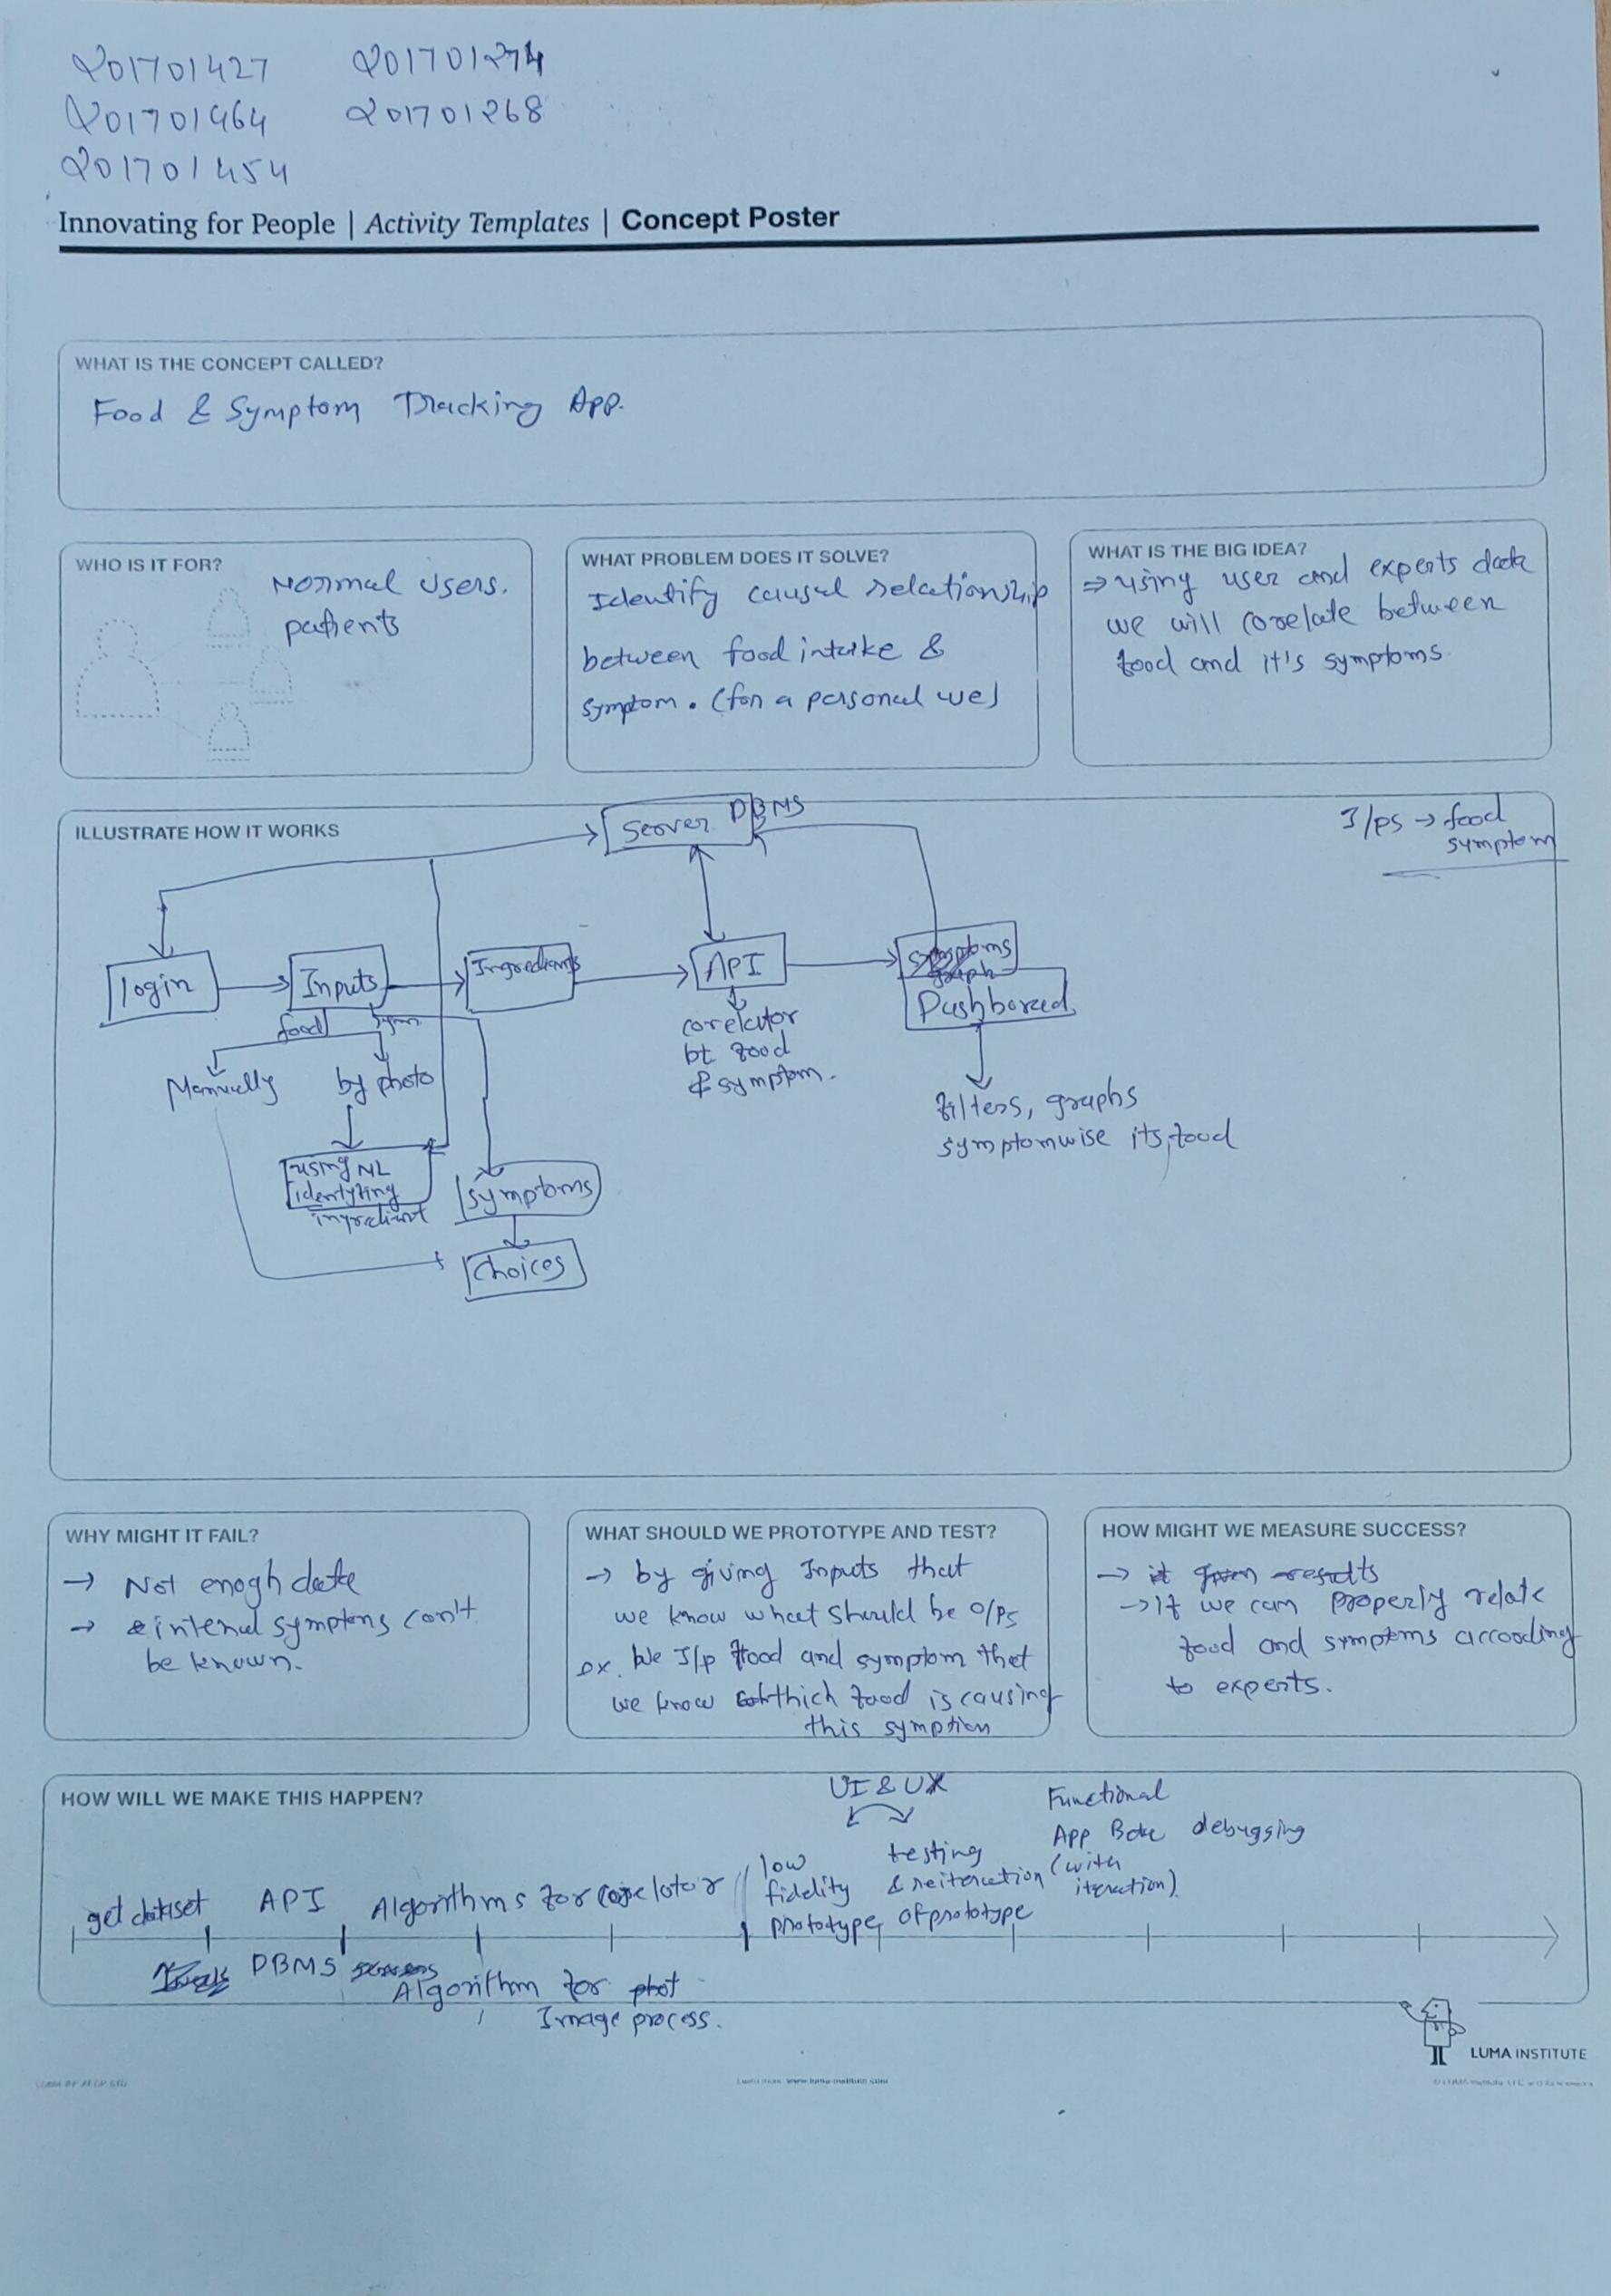 201701427 201701274
201701464 201701268
201701454
Innovating for People | Activity Templates | Concept Poster
WHAT IS THE CONCEPT CALLED?
Food & Symptom Tracking App.
WHO IS IT FOR?
Normal users.
patients
WHAT PROBLEM DOES IT SOLVE?
Identify causal relationship
between food intake &
symptom. (for a personal use)
WHAT IS THE BIG IDEA?
⇒ using user and experts data
we will corelate between
food and it's symptoms
ILLUSTRATE HOW IT WORKS
Server DBMS
I/ps → food
symptom
login
Inputs
Ingredients
API
symptoms
graph
Dashborad
food
sym
Manually
by photo
corelator
bt food
& symptom.
filters, graphs
symptomwise its food
using NL
identyfing
ingredient
symptoms
choices
WHY MIGHT IT FAIL?
→ Not enogh data
→ internal symptoms can't
be known.
WHAT SHOULD WE PROTOTYPE AND TEST?
→ by giving Inputs that
we know what should be o/ps
ex. We I/p food and symptom that
we know which food is causing
this symption
HOW MIGHT WE MEASURE SUCCESS?
→ it given results
→ if we can properly relate
food and symptoms according
to experts.
HOW WILL WE MAKE THIS HAPPEN?
UI & UX
get dataset
API
Algorithms for corelator
low
fidelity
prototype,
testing
& reiteration
of prototype
Functional
App
(with
iteration).
debugging
DBMS
Algorithm for phot
Image process.
LUMA INSTITUTE